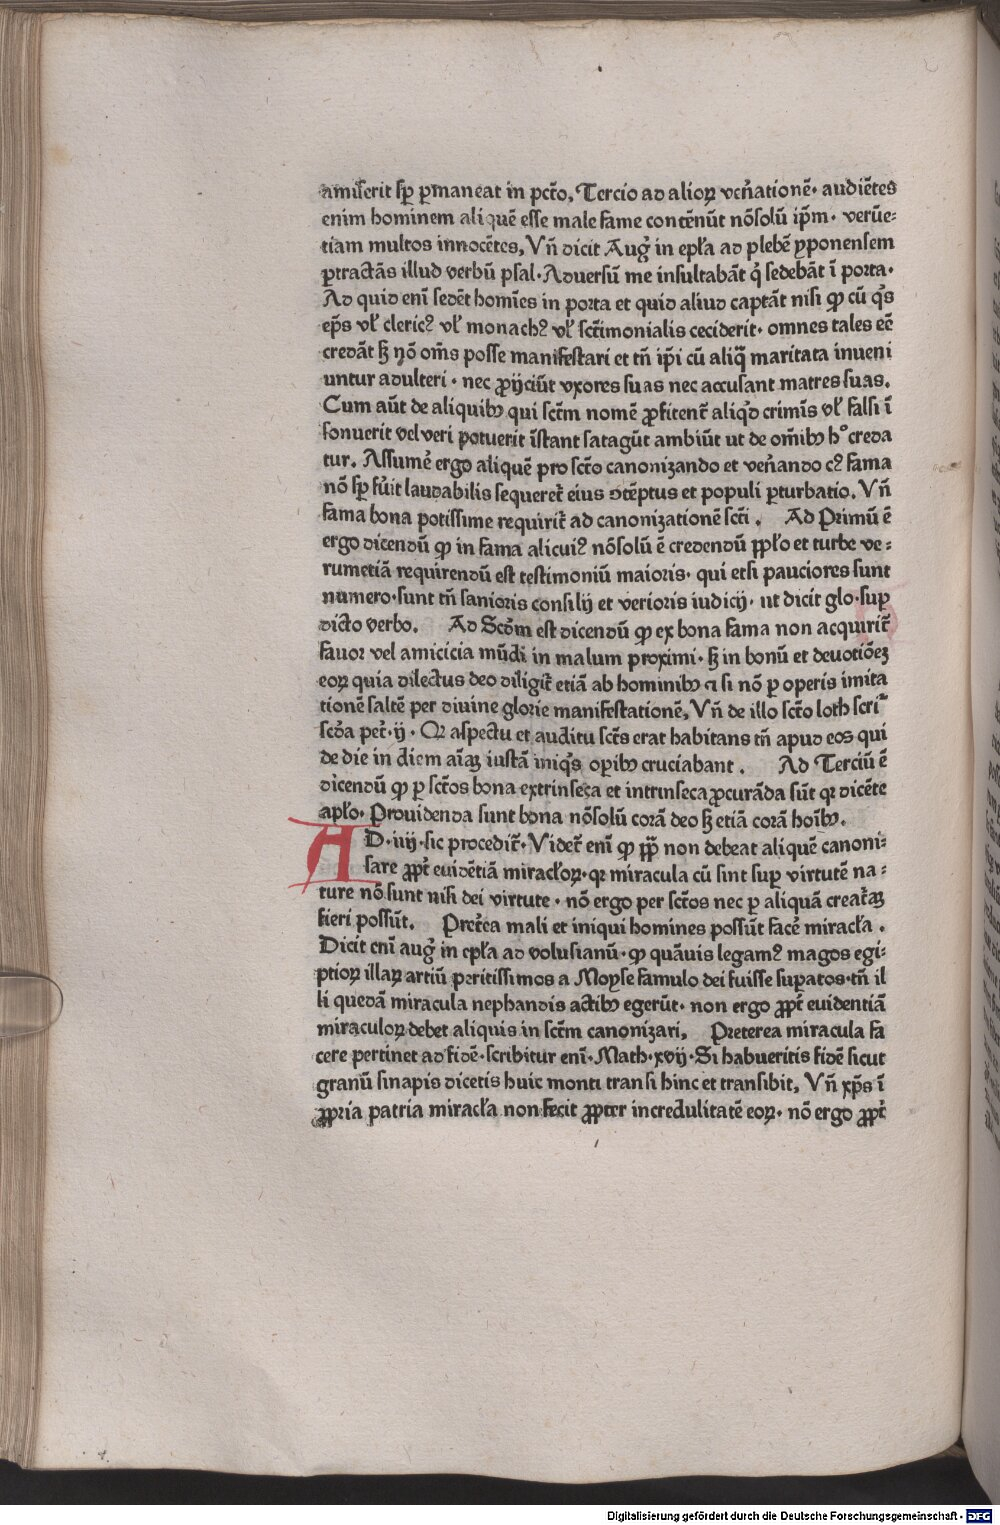 amiserit sp̱ ꝑmaneat in pctō, Tercio ad alioꝝ ven̄ationē· audiētes
enim hominem aliquē esse male fame contēnūt nōsolū ip̄m· verūe⸗
tiam multos innocētes, Vn̄ dicit Aug᷒ in ep̄la ad plebē yponensem
ꝑtractās illud verbū psal·Adversū me insultabāt q᷒ sedebāt ī porta·
Ad quid enī sedēt homīes in porta et quid aliud captāt nisi ꝙ cū q̄s
ep̄s vl̄ cleric⁹ vl̄ monach⁹ vl̄ sctīmonialis ceciderit· omnes tales eē
credāt sꝫ nō om̄s posse manifestari et tn̄ ip̄i cū aliq̄ maritata inueni
untur adulteri · nec ꝓijciūt vxores suas nec accusant matres suas.
Cum aūt de aliquibꝰ qui sctm̄ nomē ꝓfitent᷑ aliq̄d crimīs vl̄ falsi ī
sonuerit vel veri potuerit īstant satagūt ambiūt ut de om̄ibꝰ hᵒ creda
tur. Assume᷑ ergo aliquē pro sctō canonizando et ven̄ando c⁹ fama
nō sp̱ fu᷑it laudabilis sequeret᷑ eius ↄtēptus et populi ꝑturbatio. Vn̄
fama bona potissime requirit᷑ ad canonizationē sctī . Ad Primū ē
ergo dicendū ꝙ in fama alicui⁹ nōsolū ē credendū pp̄lo et turbe ve⸗
rumetiā requirendū est testimoniū maioris· qui etsi pauciores sunt
numero·sunt tn̄ sanioris consilij et verioris iudicij· ut dicit glo·suꝑ
dicto verbo. Ad Scdm̄ est dicendū ꝙ ex bona fama non acquirit᷑
fauor vel amicicia mūdi in malum proximi· sꝫ in bonū et deuotiōeꝫ
eoꝝ quia dilectus deo diligit᷑ etiā ab hominibꝰ ⁊ si nō ꝑ operis imita
tionē saltē per diuine glorie manifestationē, Vn̄ de illo sctō loth scri᷑
scdā pet᷑·ij · Qꝛ aspectu et auditu sctūs erat habitans tn̄ apud eos qui
de die in diem aīaꝫ iustā iniq̄s oꝑibꝰ cruciabant . Ad Terciū ē
dicendū ꝙ ꝑ sctōs bona extrinseca et intrinseca ꝓcurāda sūt qꝛ dicēte
ap̄lo· Prouidenda sunt bona nōsolū corā deo sꝫ etiā corā hoībꝰ.
AD·iiij·sic procedit᷑· Videt᷑ enī ꝙ pp̄ non debeat aliquē canoni⸗
sare ꝓpt᷑ euidētiā miracloꝝ· qꝛ miracula cū sint suꝑ virtutē na⸗
ture nō sunt nisi dei virtute · nō ergo per sctōs nec ꝑ aliquā creat᷑aꝫ
fieri possūt. Pret᷑ea mali et iniqui homines possūt face᷑ miracl̄a .
Dicit enī aug᷒ in ep̄la ad volusianū· ꝙ quāuis legam⁹ magos egi⸗
ptioꝝ illaꝝ artiū peritissimos a Moyse famulo dei fuisse suꝑatos·tn̄ il
li quedā miracula nephandis actibꝰ egerūt· non ergo ꝓpt᷑ euidentiā
miraculoꝝ debet aliquis in sctm̄ canonizari, Preterea miracula fa
cere pertinet ad fidē·scribitur enī·Math·xvij·Si habueritis fidē sicut
granū sinapis dicetis huic monti transi hinc et transibit, Vn̄ xp̄s ī
ꝓpria patria miracl̄a non fecit ꝓpter incredulitatē eoꝝ· nō ergo ꝓpt᷑
Digitalisierung gefördert durch die Deutsche Forschungsgemeinschaft - DFG